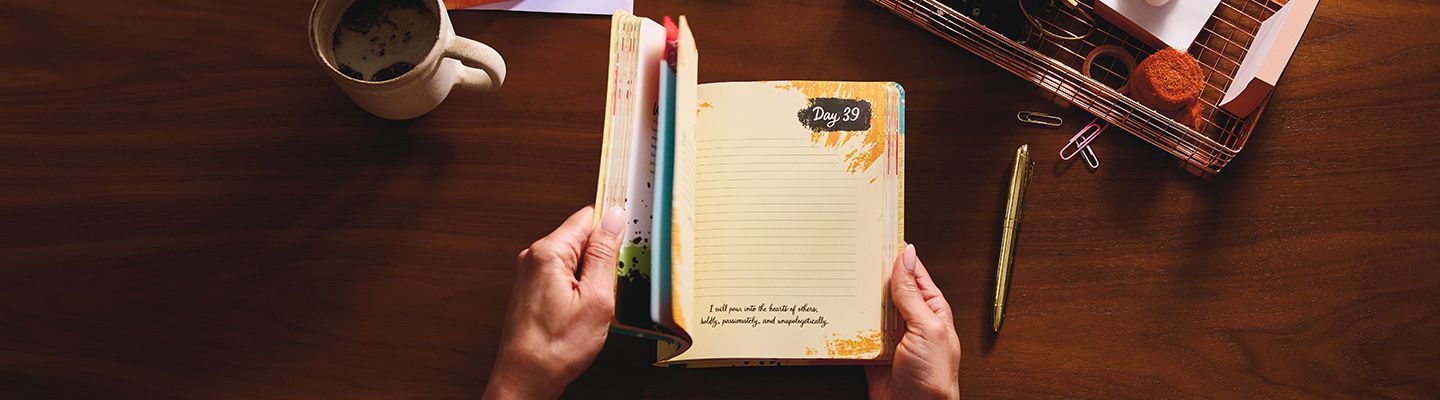 Day 39
I will pour into the hearts of others,
boldly, passionately, and unapologetically.